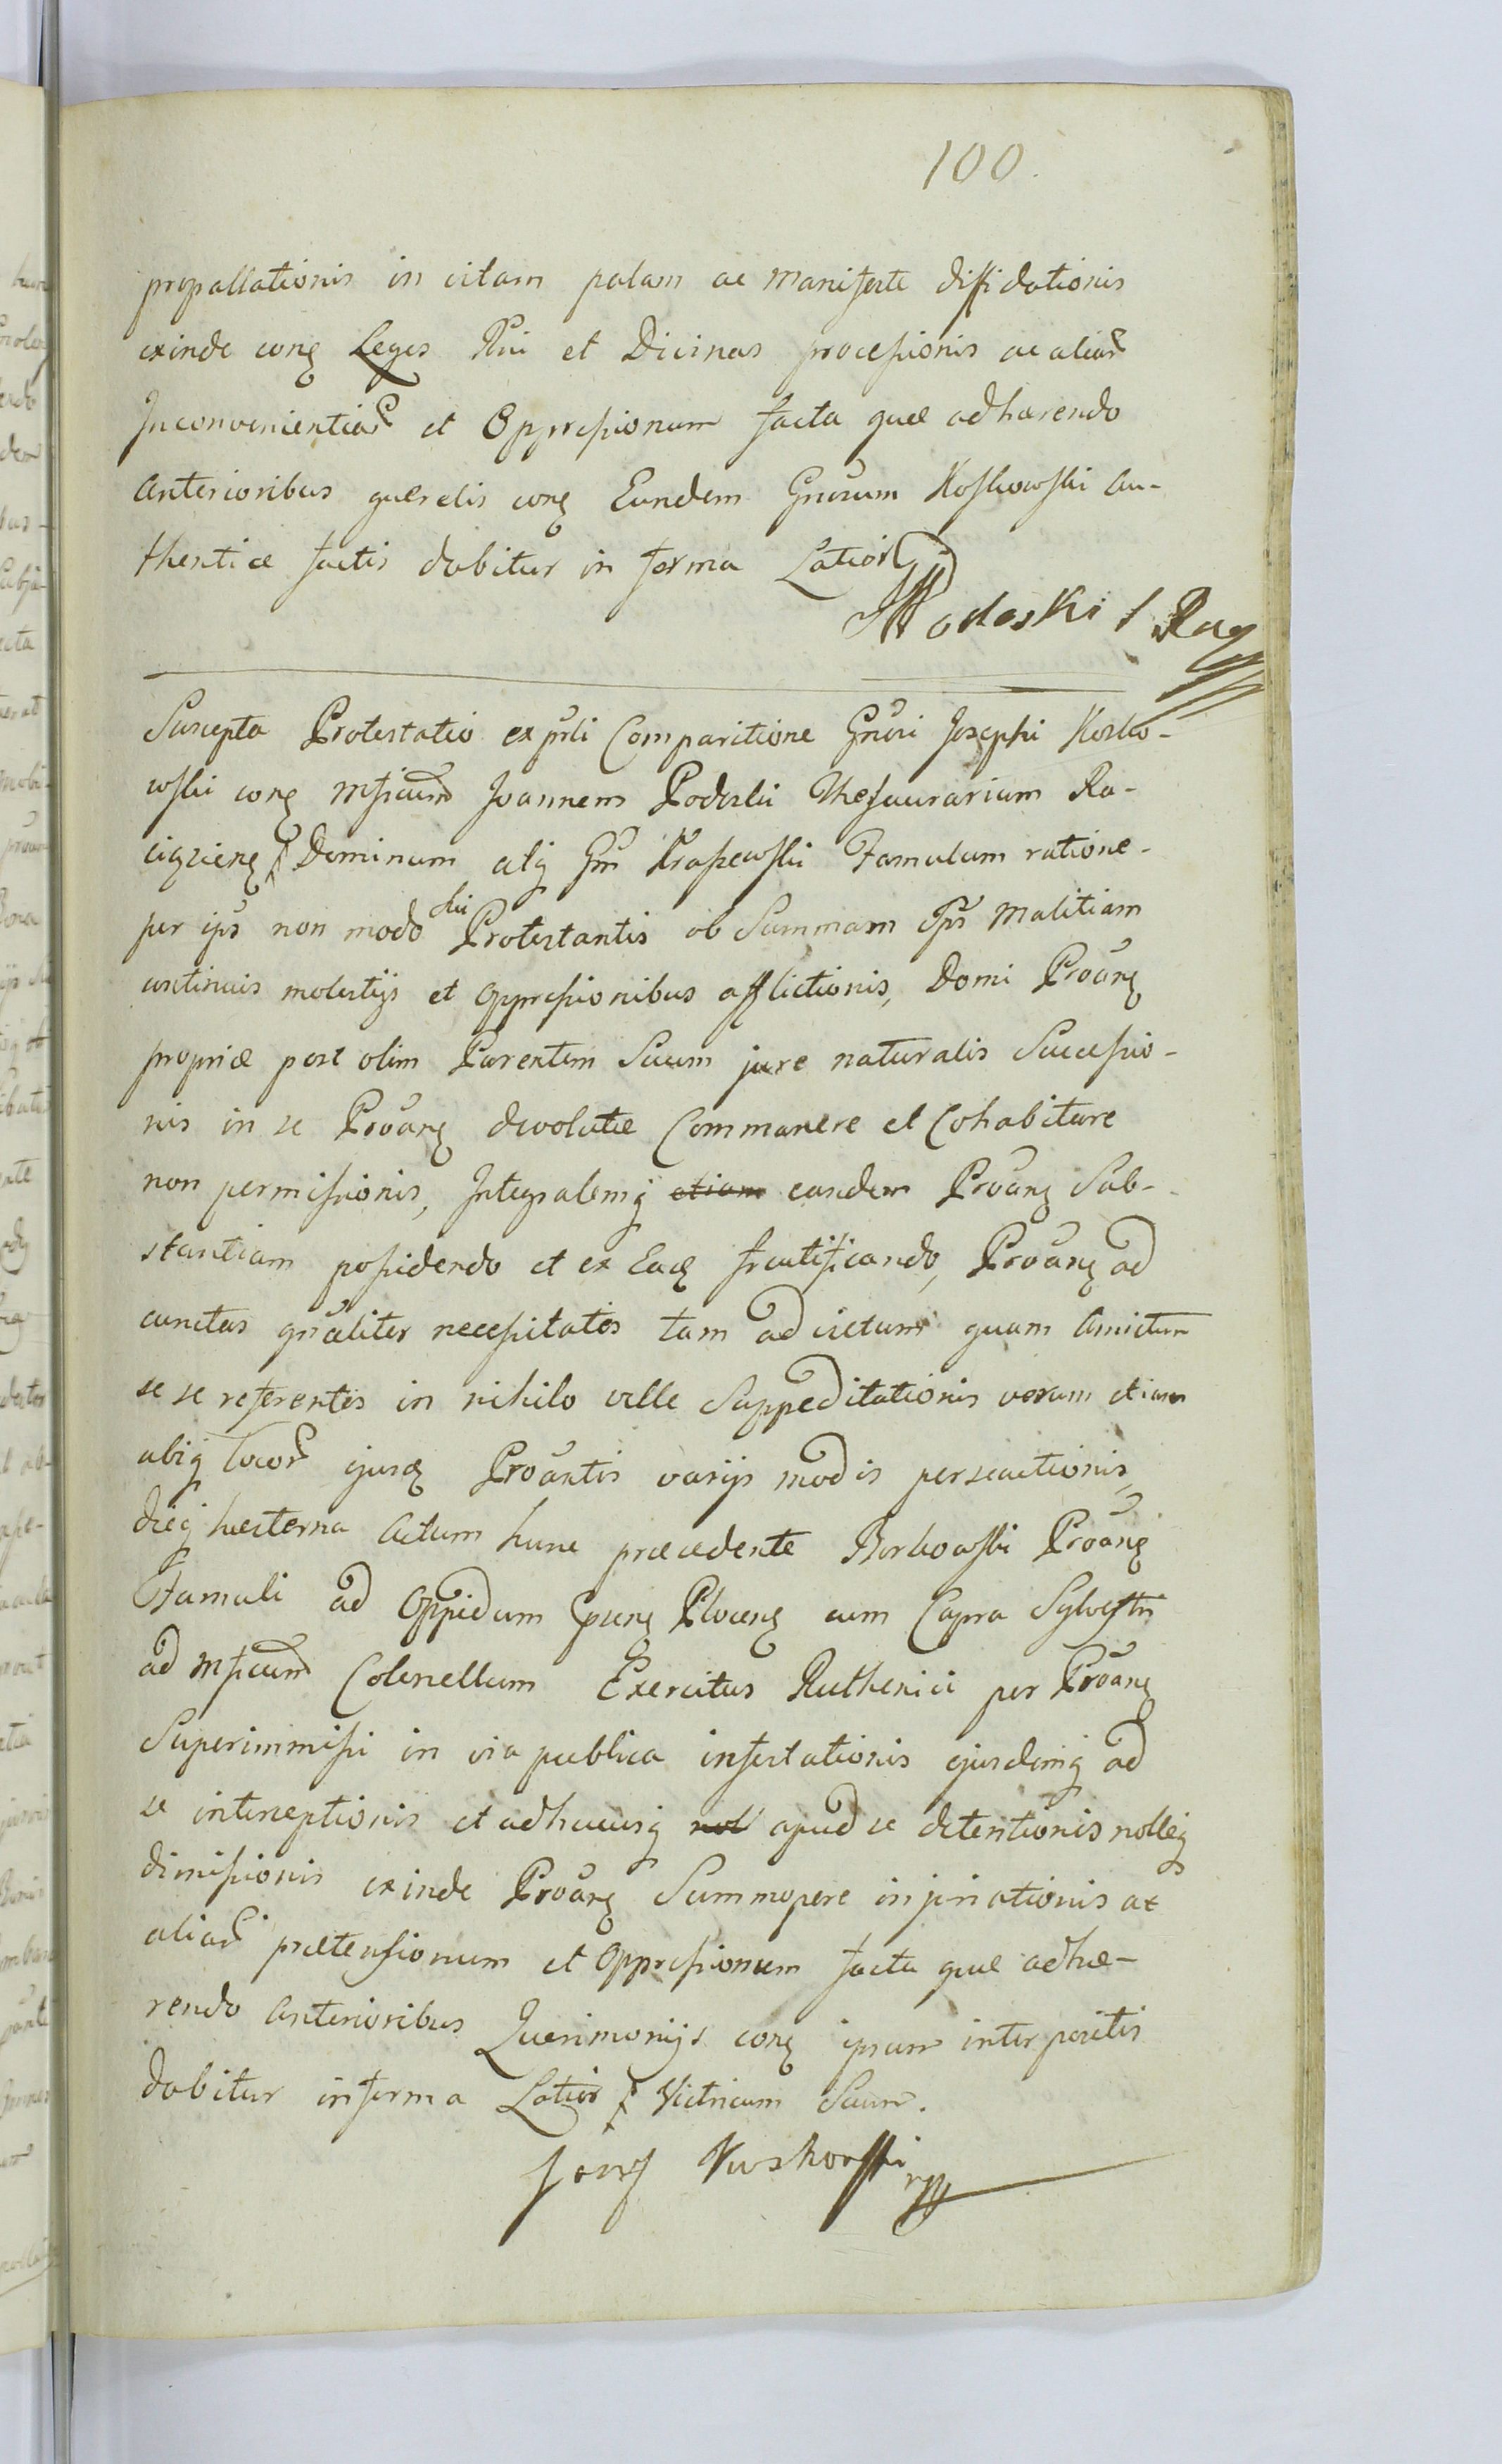 100.
propallationis in vitam palam ac manifeste diffidationis
exinde conq̃ Leges Rni et Divinas processionis ac aliar̃
Inconvenientiar̃ et Oppressionum facta quæ adhærendo
anterioribus querelis conq̃ Eundem Gnosum Koskowski Au-
thentice factis dabitur in forma Latior̃
Podoski S Raç
Suscepta Protestatio ex p̃sli Comparitione Gnosi Josephi Kosko-
wski conq̃ Mficum̃ Joannem Podoski Thesaurarium Ra-
ciązienq̃ Dominum atq̃ Gm̃ Kraszewski Famulum ratione-
per ips̃ non modo chi Protestantis ob Summam Ips̃ Malitiam
continuis molestijs et oppressionibus afflictionis, Domi Proãnq̃
propriæ post olim Parentem Suum jure naturalis Successio-
nis in se Proãnq̃ devolutæ Commanere et Cohabitare
non permissionis, Integralemq̃ etiam eandem Proãnq̃ Sub-
stantiam possidendo et ex Eaq̃ fructificando, Proãnq̃ ad
cunctas gnãliter necessitates tam ad victum quam Amictum
se se referentes in nihilo velle Suppeditationis verum etiam
ubiq̃ locor̃ ejusq̃ Proãntis varijs modis persecutionis,
dieq̃ hesterna Actum hunc præcedente Borkowski Proãnq̃
Famuli ad Oppidum Epaenq̃ Plocenq̃ cum Capra Sylvestri
ad Mficum̃ Colonellum Exercitus Ruthenici per Proãnq̃
Superimmissi in via publica infestationis ejusdemq̃ ad
se interceptionis et adhucusq̃ nol apud se detentionis nolleq̃
dimissionis exinde Proãnq̃ Summopere injuriationis ac
aliar̃ prætensionum et Oppressionum facta quæ adhæ-
rendo Anterioribus Querimonijs conq̃ ipsum interpositis
dabitur in forma Latior̃ Victricum Suum.
Jozef Kuskowski mpp